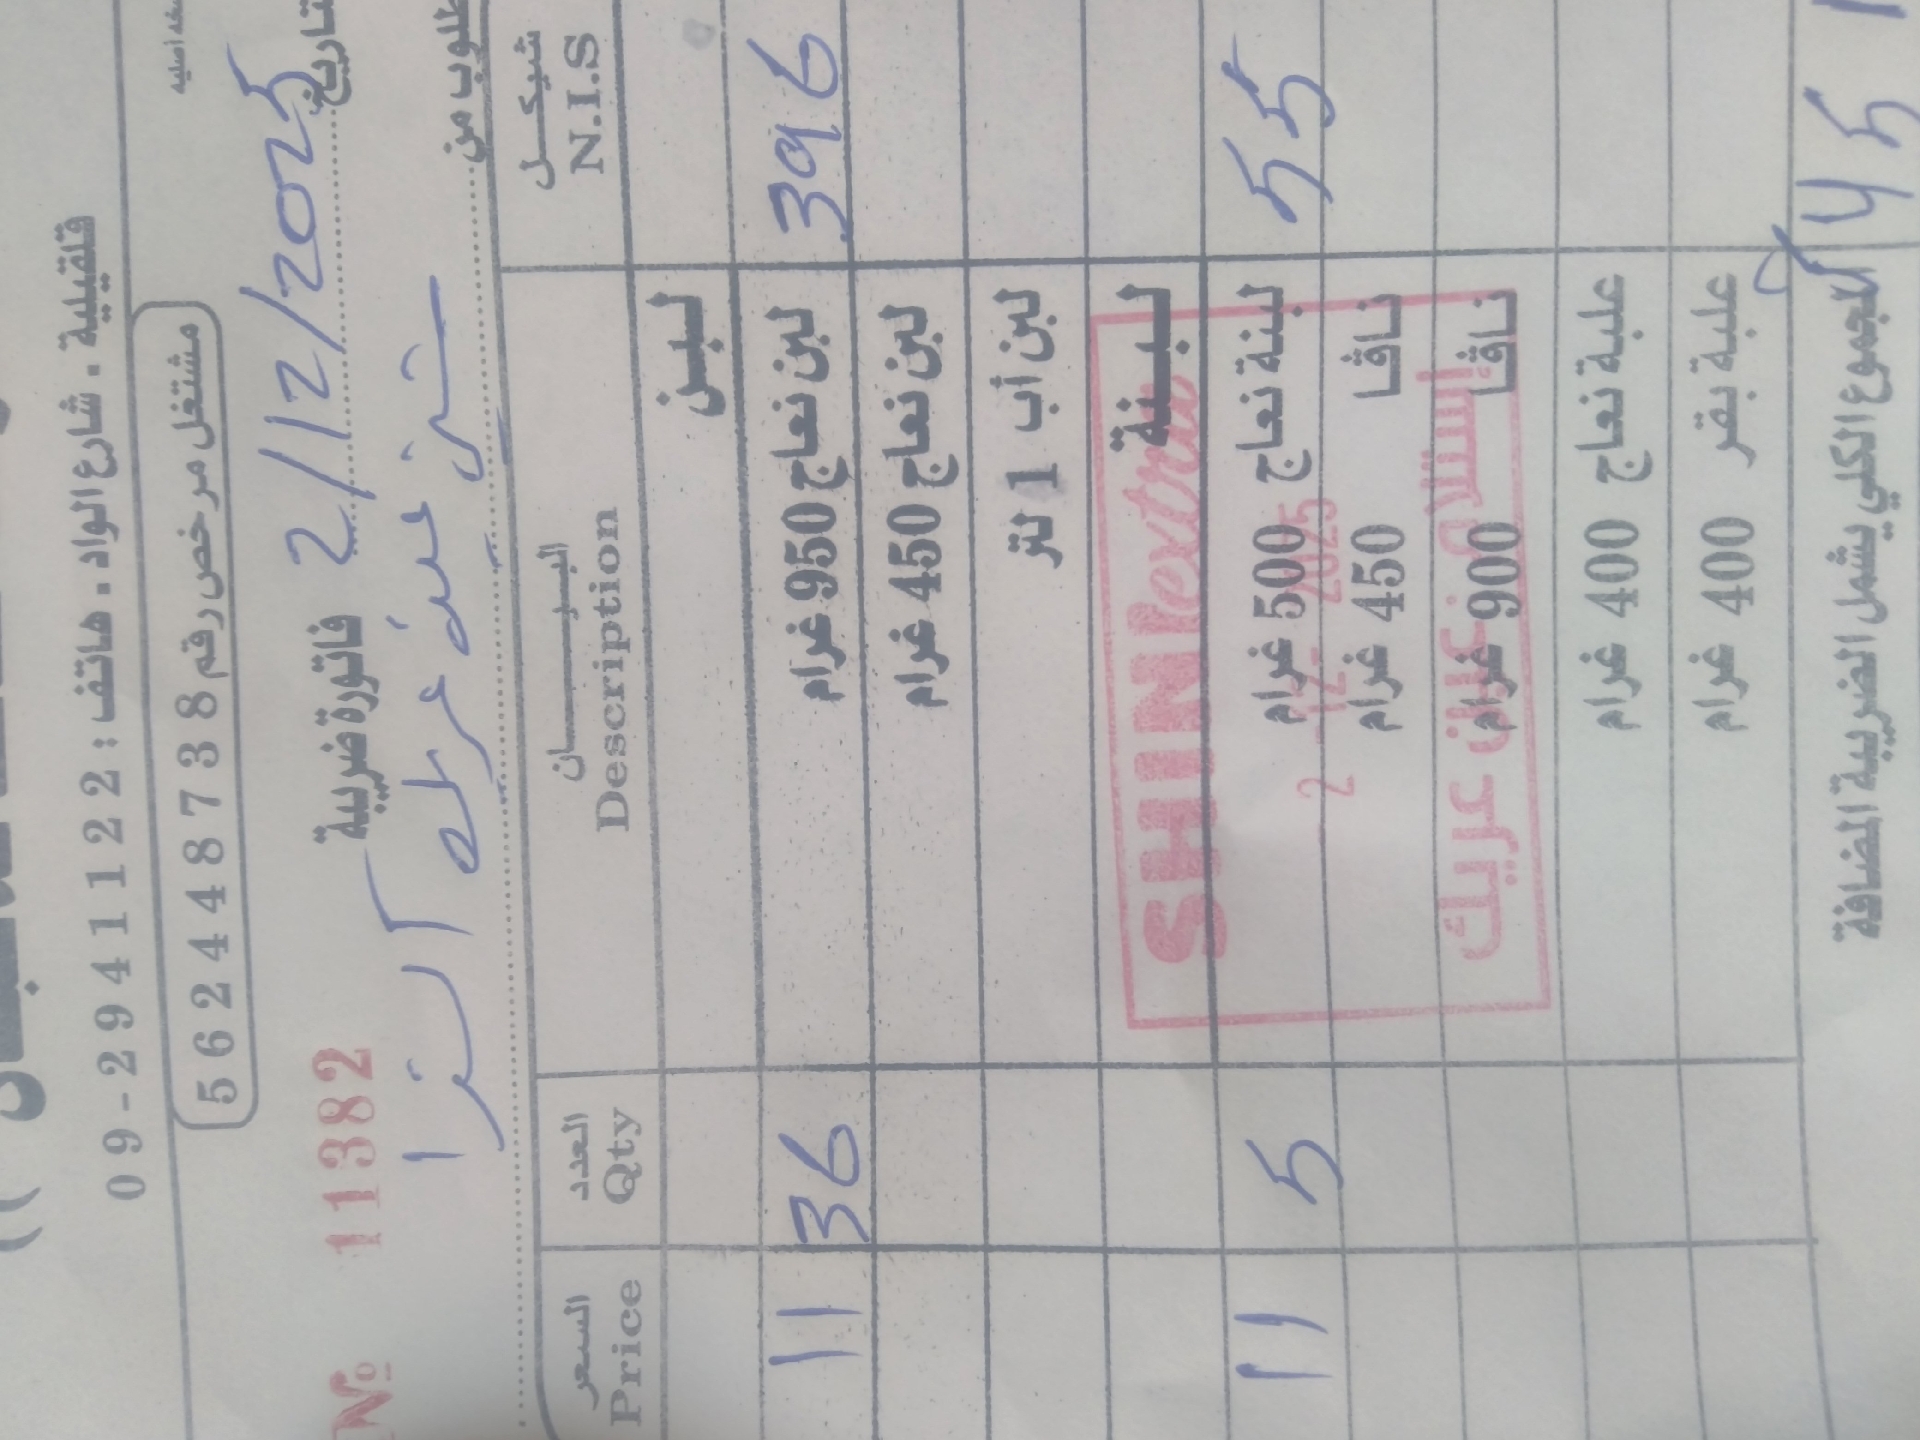 قلقيلية . شارع الواد . هاتف : 09-2941122
مشتغل مرخص رقم 562448738
نسخة اصلية
فاتورة ضريبية
التاريخ 2/12/2025
№ 11382
المطلوب من
السعر Price
العدد Qty
البيـــــان Description
شيكـــل N.I.S
لبـــن
11 36 لبن نعاج 950 غرام 396
لبن نعاج 450 غرام
لبن أب 1 لتر
لبـــنة
11 5 لبنة نعاج 500 غرام 55
نـافـا 450 غرام
نـافـا 900 غرام
علبة نعاج 400 غرام
علبة بقر 400 غرام
المجموع الكلي يشمل الضريبة المضافة 451
SHIN extra
2 -12- 2025
استلام عرين عريك